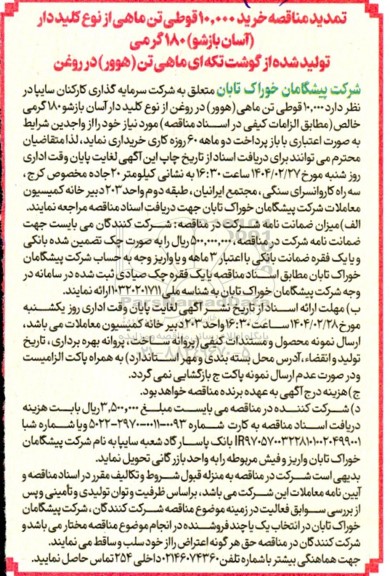 تمدید مناقصه خرید ۱۰,۰۰۰ قوطی تن ماهی از نوع کلید دار
(آسان بازشو) ۱۸۰ گرمی
تولید شده از گوشت تکه ای ماهی تن (هوور) در روغن
شرکت پیشگامان خوراک تابان متعلق به شرکت سرمایه گذاری کارکنان سایپا در
نظر دارد ۱۰,۰۰۰ قوطی تن ماهی (هوور) در روغن از نوع کلید دار آسان بازشو ۱۸۰ گرمی
خالص (مطابق الزامات کیفی در اسناد مناقصه) مورد نیاز خود را از واجدین شرایط
به صورت اعتباری با باز پرداخت دو ماهه ۶۰ روزه کاری خریداری نماید، لذا متقاضیان
محترم می توانند برای دریافت اسناد از تاریخ چاپ این آگهی لغایت پایان وقت اداری
روز شنبه مورخ ۱۴۰۴/۰۲/۲۷ ساعت ۱۶:۳۰ به نشانی کیلومتر ۲۰ جاده مخصوص کرج،
سه راه کاروانسرای سنگی، مجتمع ایرانیان، طبقه دوم واحد ۲۰۳ دبیر خانه کمیسیون
معاملات شرکت پیشگامان خوراک تابان جهت دریافت اسناد مناقصه مراجعه نمایند.
الف) میزان ضمانت نامه شرکت در مناقصه: شرکت کنندگان می بایست جهت
ضمانت نامه شرکت در مناقصه، ۵۰۰,۰۰۰,۰۰۰ ریال را به صورت چک تضمین شده بانکی
و یا یک فقره ضمانت بانکی با اعتبار ۳ ماهه و یا واریز وجه به حساب شرکت پیشگامان
خوراک تابان مطابق اسناد مناقصه یا یک فقره چک صیادی ثبت شده در سامانه در
وجه شرکت پیشگامان خوراک تابان به شناسه ملی ۱۰۳۲۰۲۰۱۷۱۱ ارائه نمایند.
ب) مهلت ارائه اسناد از تاریخ نشر آگهی لغایت پایان وقت اداری روز یکشنبه
مورخ ۱۴۰۴/۰۲/۲۸ ساعت ۱۶:۳۰ واحد ۲۰۳ دبیر خانه کمیسیون معاملات می باشد،
ارسال نمونه محصول و مستندات کیفی (پروانه ساخت، پروانه بهره برداری، تاریخ
تولید و انقضاء، آدرس محل بسته بندی و مهر استاندارد) به همراه پاکت الزامیست
و در صورت عدم ارسال نمونه پاکت ج بازگشایی نمی گردد.
ج) هزینه درج آگهی به عهده برنده مناقصه خواهد بود.
د) شرکت کننده در مناقصه می بایست مبلغ ۳,۵۰۰,۰۰۰ ریال بابت هزینه
دریافت اسناد مناقصه به کارت شماره ۰۰۹۳-۰۰۱۱-۲۹۷۰-۵۰۲۲ و یا شماره شبا
بانک پاسارگاد شعبه سایپا به نام شرکت پیشگامان
خوراک تابان واریز و فیش مربوطه را به واحد بازرگانی تحویل نماید.
بدیهی است شرکت در مناقصه به منزله قبول شروط و تکالیف مقرر در اسناد مناقصه و
آیین نامه معاملات این شرکت می باشد، براساس ظرفیت و توان تولیدی و تأمینی و پس
از بررسی سوابق فعالیت در زمینه موضوع مناقصه شرکت کنندگان، شرکت پیشگامان
خوراک تابان در انتخاب یک یا چند فروشنده در انجام موضوع مناقصه مختار می باشد و
شرکت کنندگان در مناقصه حق هر گونه اعتراض را از خود سلب و ساقط می نمایند.
جهت هماهنگی بیشتر با شماره تلفن ۰۲۱۴۶۰۷۴۳۶۰ داخلی ۲۵۴ تماس حاصل نمایید.